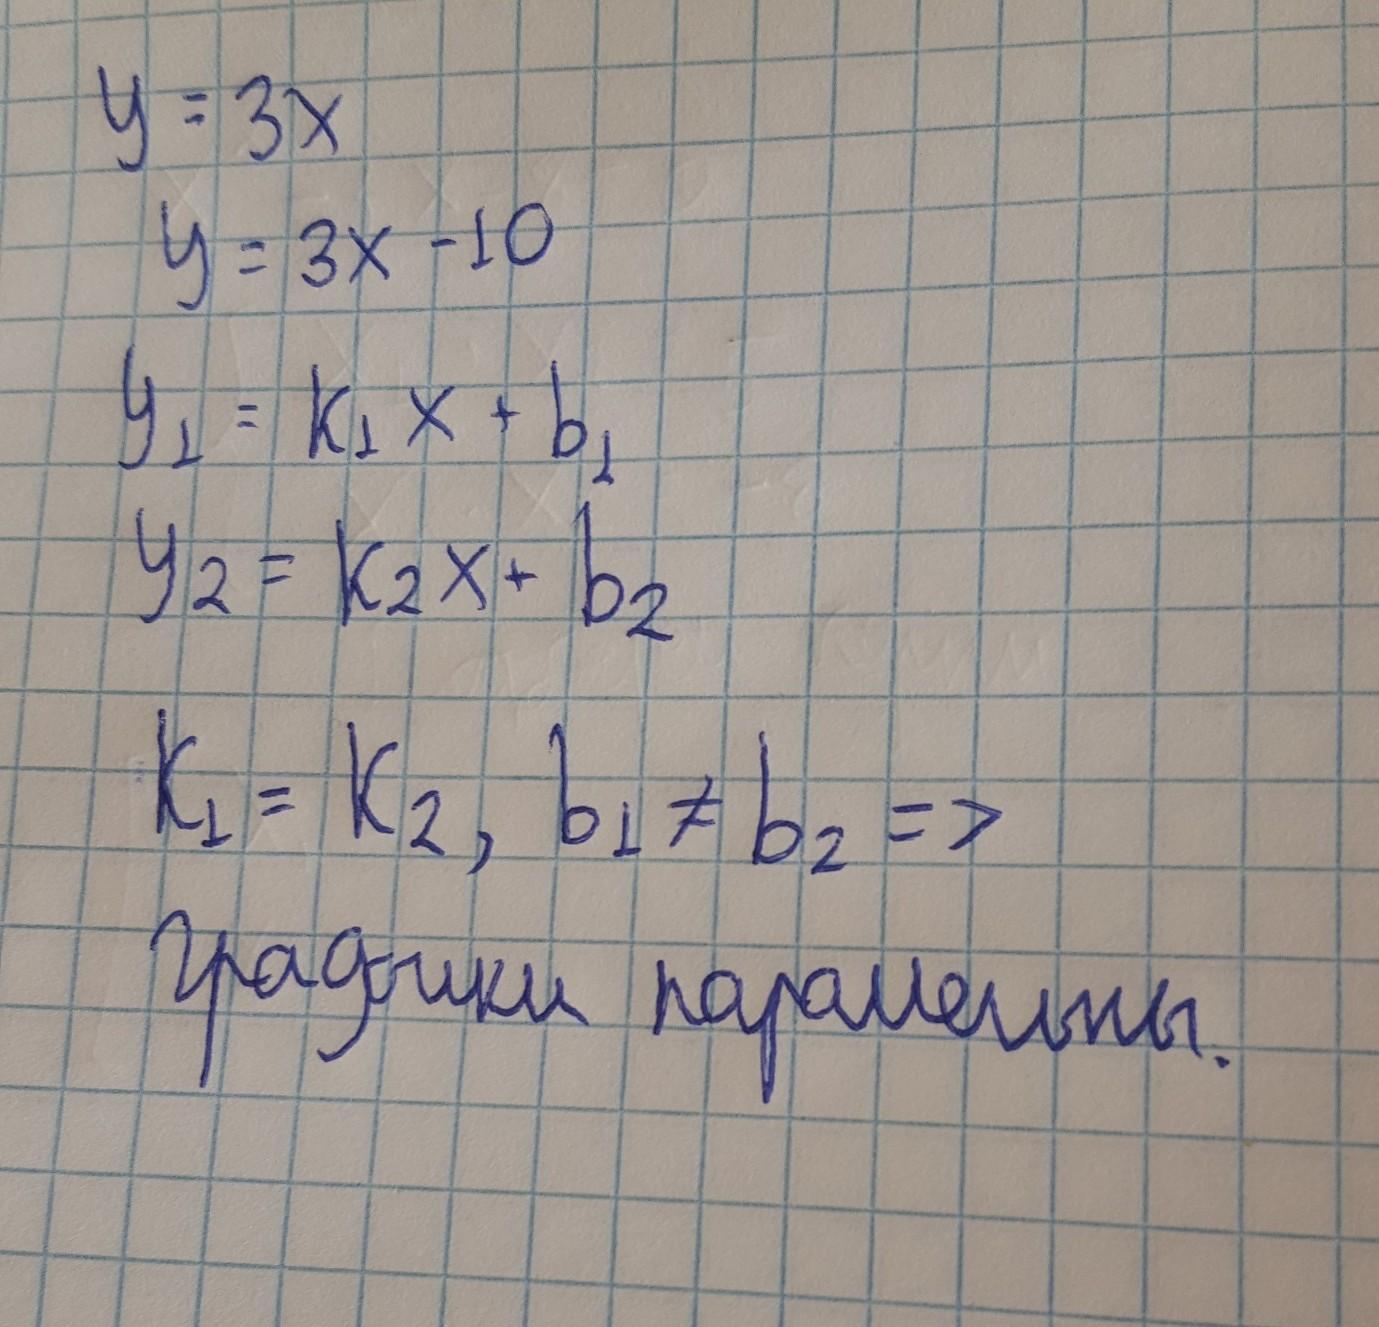 y = 3x
y = 3x - 10
y₁ = k₁x + b₁
y₂ = k₂x + b₂
k₁ = k₂, b₁ ≠ b₂ =>
графики параллельны.